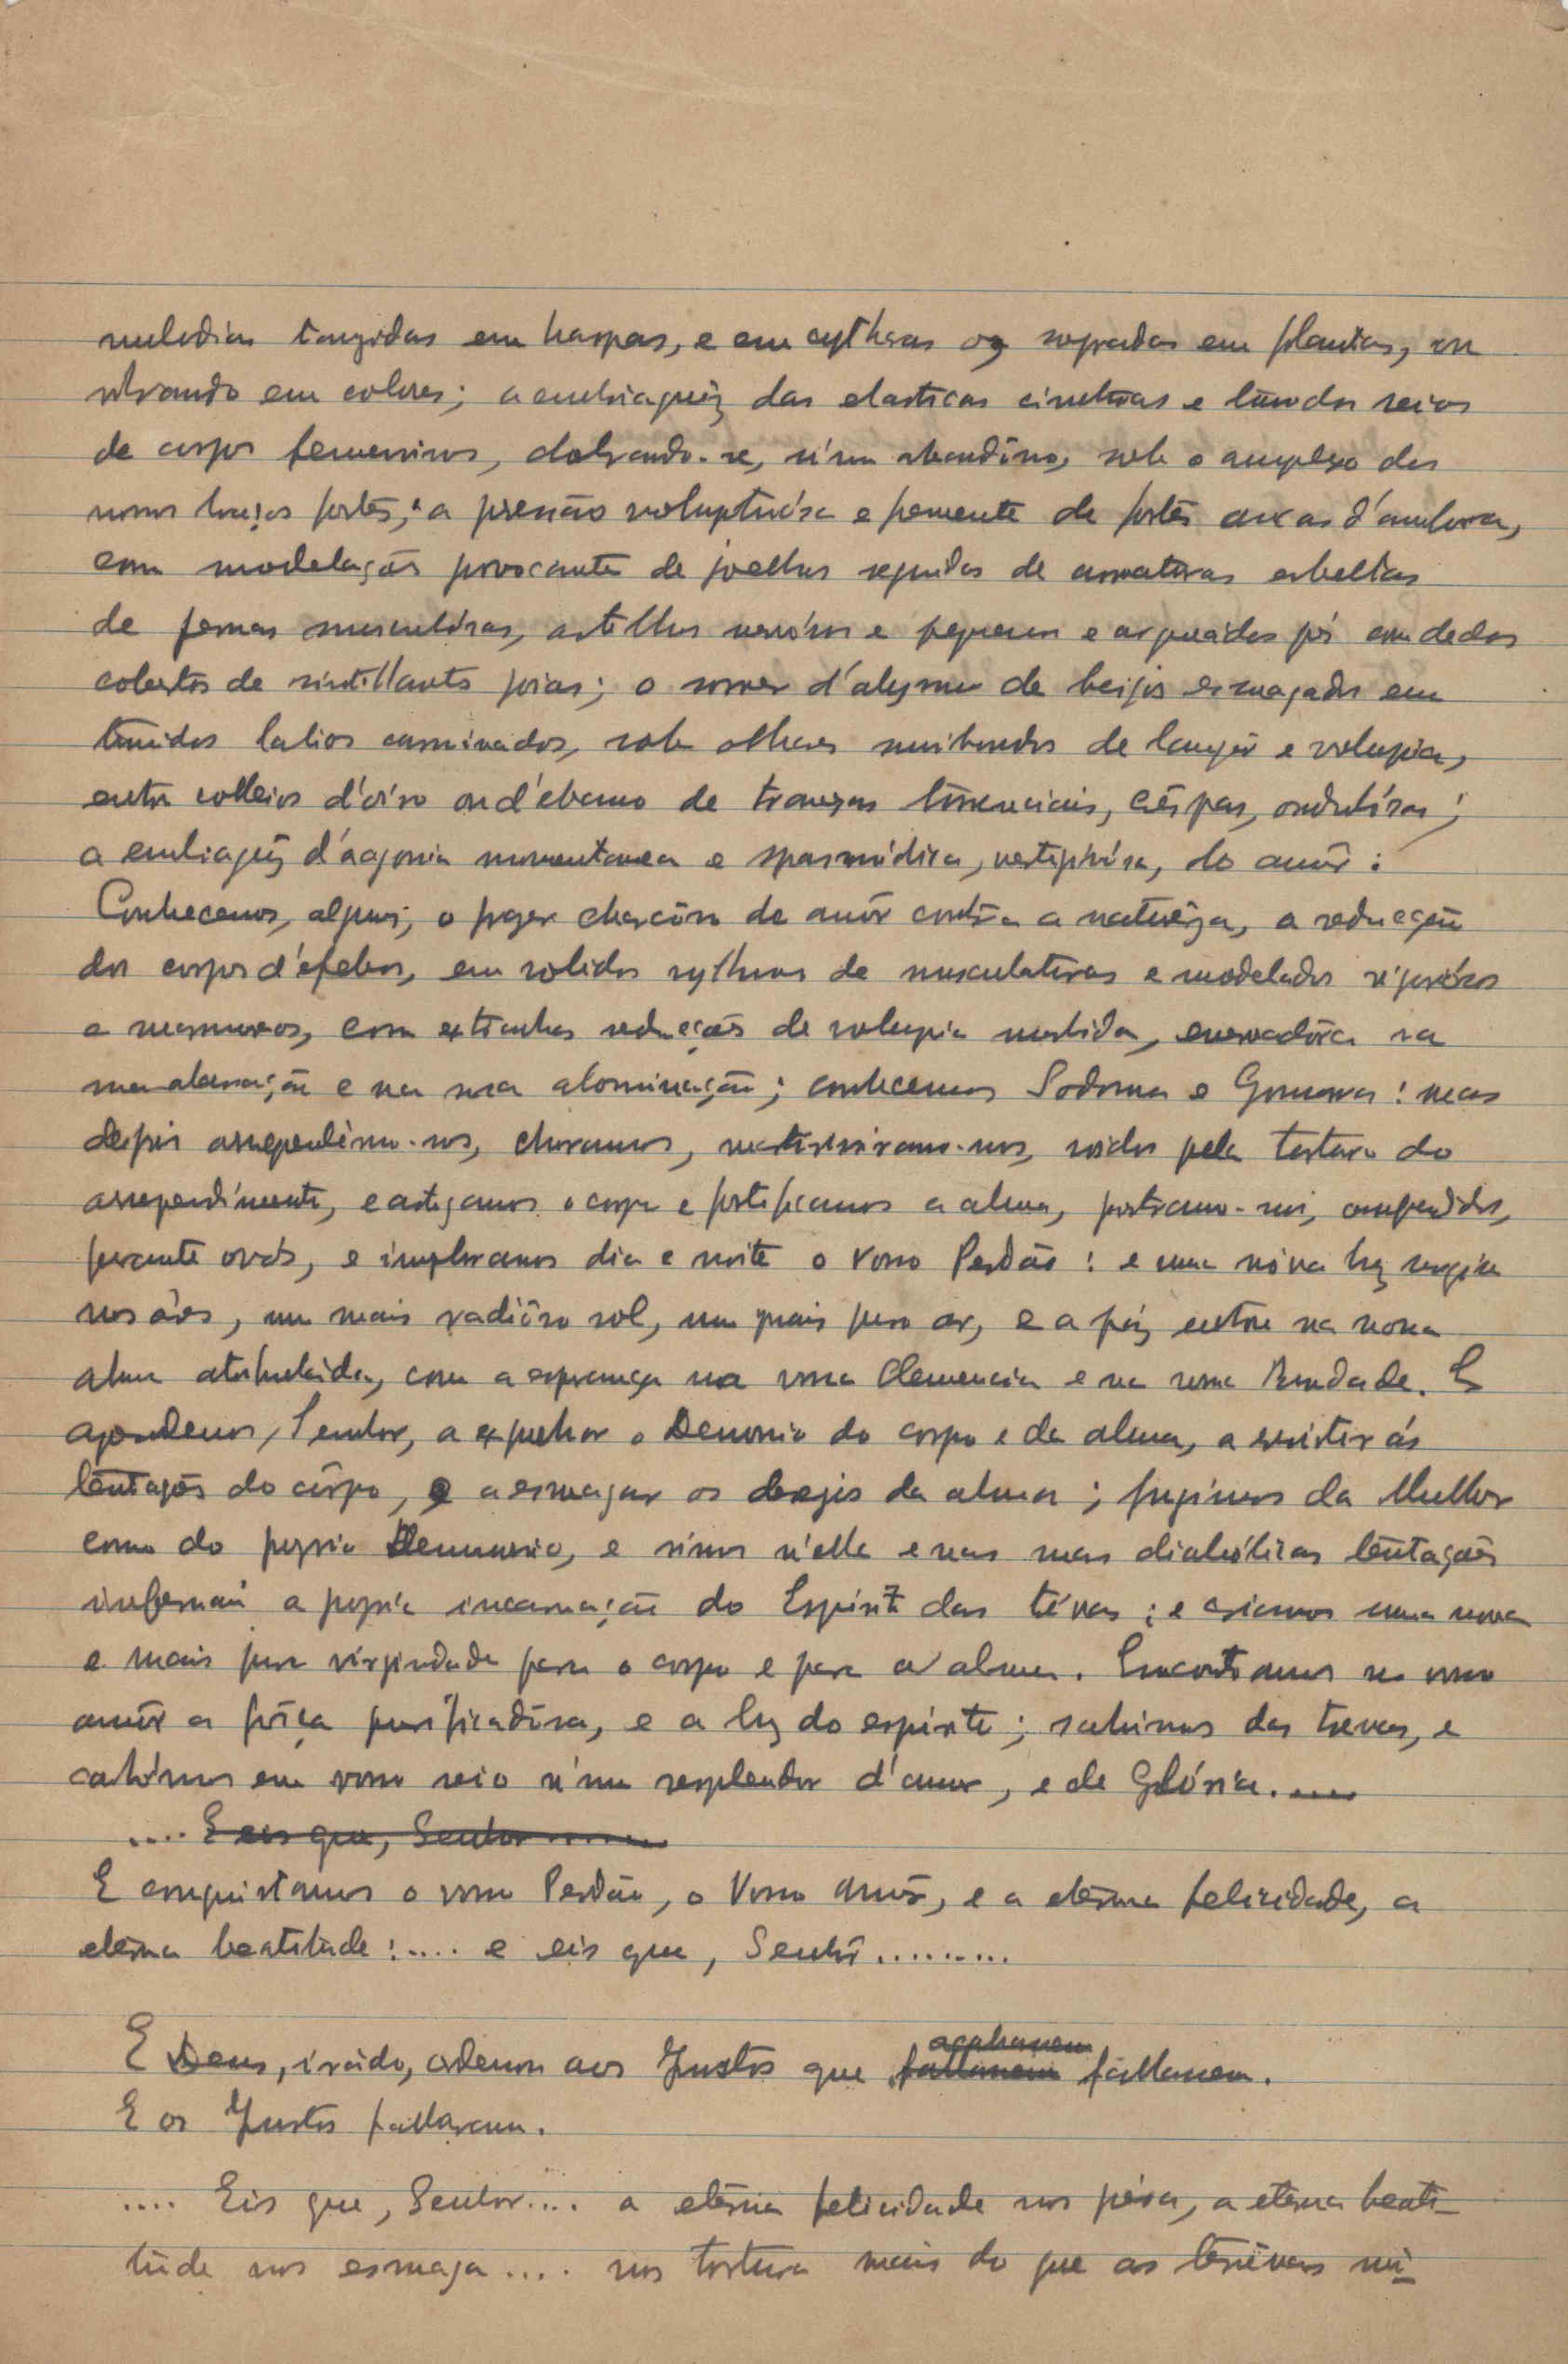 melodias tangidas em harpas, e em cytharas ou sopradas em flautas, ou
vibrando em cobres; a embriaguêz das elasticas cinturas e tumidos seios
de corpos femeninos, dobrando-se, n'um abandôno, sob o amplexo dos
nossos braços fortes, a pressão voluptuósa e fremente de fortes ancas d'amfora,
com modelações provocantes de joelhos seguidos de curvaturas esbeltas
de pernas musculósas, artelhos nervósos e pequenos e arqueados pés com dedos
cobertos de sintillants joias; o sorver d'abysmo de beijos esmagados em
tumidos labios carminados, sob olhares muribundos de langôr e volupia,
entre colleios d'oiro ou d'ebano de tranças serpenciais, crêspas, ondulósas;
a embriaguêz d'agonia momentanea e spasmódica, vertiginósa, do amôr:
Conhecemos, alguns, o prazer do amôr contra a naturêza, a seducção
dos corpos d'efebos, em solidos rythmos de musculaturas e modelados vigorósos
e marmoreos, com extranhas seducções de volupia morbida, enervadôra na
sua aberração e na sua abominação; conhecemos Sodoma e Gomorra: mas
depois arrependêmo-nos, choramos, martirisàmo-nos, roidos pela tortura do
arrependimento, castigamos o corpo e fortificamos a alma, prostramo-nos, compungidos,
perante vós, e imploramos dia e noite o Vosso Perdão: e uma nóva luz surgiu
nos áres, um mais radiôso sol, um mais puro ar, e a páz entrou na nossa
alma atribulada, com a esperança na vossa Clemencia e na vossa Bondade. E
aprendemos, Senhor, a expulsar o Demonio do corpo e da alma, a resistir ás
tentações do côrpo, e a esmagar os desejos da alma; fugimos da Mulher
como do proprio Demonio, e vimos n'ella e nas suas diabólicas tentações
infernais a propria incarnação do Espirito das trévas; e criamos uma nova
e mais pura virgindade para o corpo e para a alma. Encontramos no vosso
amôr a fôrça purificadôra, e a luz do espirito; sahimos das trevas, e
cahimos em vosso seio n'um resplendor d'amor, e de Glória.....
.... E eis que, Senhor ......
E conquistamos o vosso Perdão, o Vosso Amôr, e a etérna felicidade, a
etérna beatitude:.... e eis que, Senhôr.........
E Deus, irádo, ordenou aos Justos que fallassem acabassem fallassem.
E os Justos fallaram.
.... Eis que, Senhor.... a etérna felicidade nos pésa, a eterna beati-
tude nos esmaga.... nos tortura mais do que as